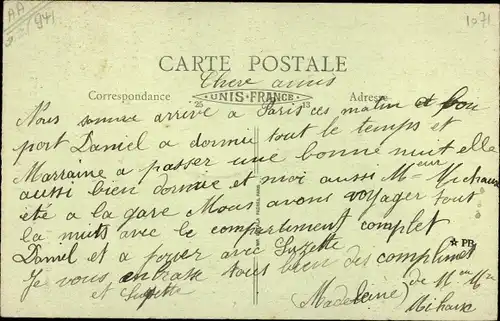 AA
941
1071
CARTE POSTALE
Chere amis
Correspondance
25 UNIS-FRANCE 13
Adresse
Nous somme arrivé a Paris ces matin a bon
port Daniel a dormie tout le temps et
Marraine a passer une bonne nuit elle
aussi bien dormie et moi aussi Mieur Michaux
été a la gare Nous avons voyager tout
la nuits avec le compartiment complet
Daniel et a avec Suzette
★ PB
Je vous embrasse tous bien des compliment
et Suzette
de Mr Mme
(Madeleine)
Michaux